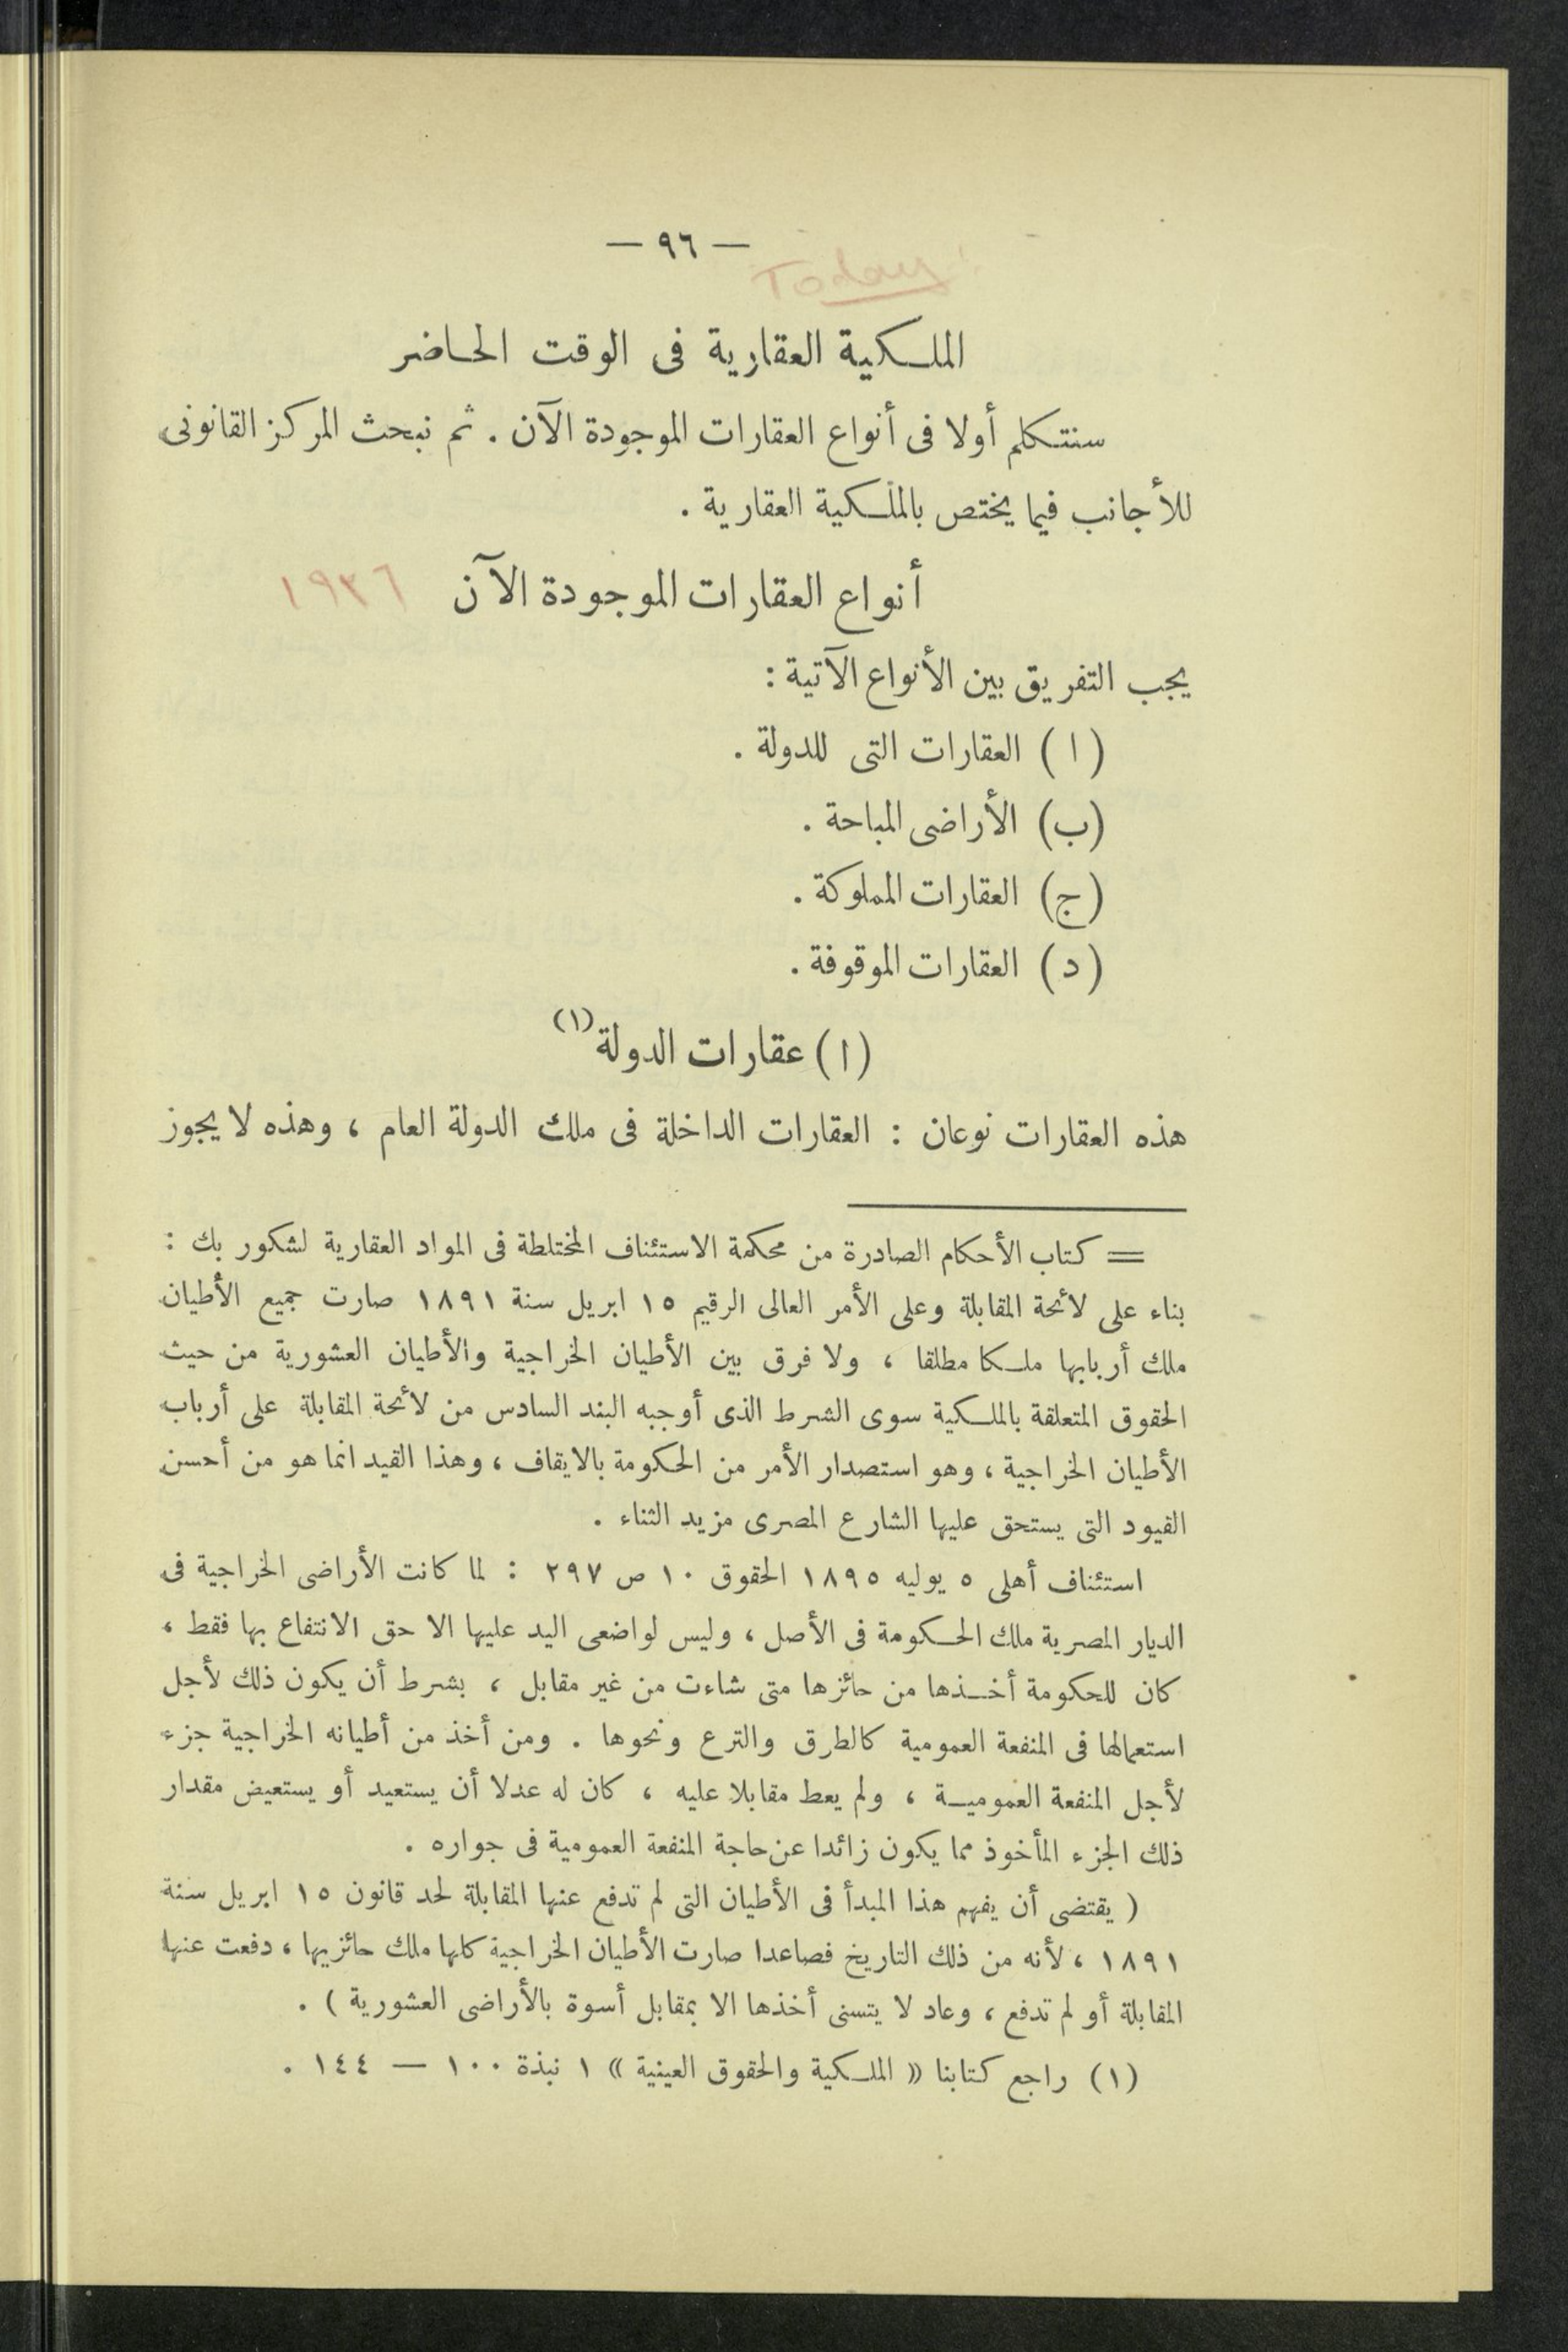 — ٩٦ —
Today
الملكية العقارية فى الوقت الحاضر
سنتكلم أولا فى أنواع العقارات الموجودة الآن . ثم نبحث المركز القانونى
للأجانب فيما يختص بالملكية العقارية .
أنواع العقارات الموجودة الآن ١٩٣٦
يجب التفريق بين الأنواع الآتية :
( ا ) العقارات التى للدولة .
(ب) الأراضى المباحة .
(ج) العقارات المملوكة .
( د ) العقارات الموقوفة .
( ا ) عقارات الدولة (١)
هذه العقارات نوعان : العقارات الداخلة فى ملك الدولة العام ، وهذه لا يجوز
= كتاب الأحكام الصادرة من محكمة الاستئناف المختلطة فى المواد العقارية لشكور بك :
بناء على لائحة المقابلة وعلى الأمر العالى الرقيم ١٥ ابريل سنة ١٨٩١ صارت جميع الأطيان
ملك أربابها ملكا مطلقا ، ولا فرق بين الأطيان الخراجية والأطيان العشورية من حيث
الحقوق المتعلقة بالملكية سوى الشرط الذى أوجبه البند السادس من لائحة المقابلة على أرباب
الأطيان الخراجية ، وهو استصدار الأمر من الحكومة بالايقاف ، وهذا القيد انما هو من أحسن
القيود التى يستحق عليها الشارع المصرى مزيد الثناء .
استئناف أهلى ٥ يوليه ١٨٩٥ الحقوق ١٠ ص ٢٩٧ : لما كانت الأراضى الخراجية فى
الديار المصرية ملك الحكومة فى الأصل ، وليس لواضعى اليد عليها الا حق الانتفاع بها فقط ،
كان للحكومة أخذها من حائزها متى شاءت من غير مقابل ، بشرط أن يكون ذلك لأجل
استعمالها فى المنفعة العمومية كالطرق والترع ونحوها . ومن أخذ من أطيانه الخراجية جزء
لأجل المنفعة العمومية ، ولم يعط مقابلا عليه ، كان له عدلا أن يستعيد أو يستعيض مقدار
ذلك الجزء المأخوذ مما يكون زائدا عن حاجة المنفعة العمومية فى جواره .
( يقتضى أن يفهم هذا المبدأ فى الأطيان التى لم تدفع عنها المقابلة لحد قانون ١٥ ابريل سنة
١٨٩١ ، لأنه من ذلك التاريخ فصاعدا صارت الأطيان الخراجية كلها ملك حائزيها ، دفعت عنها
المقابلة أو لم تدفع ، وعاد لا يتسنى أخذها الا بمقابل أسوة بالأراضى العشورية ) .
(١) راجع كتابنا « الملكية والحقوق العينية » ١ نبذة ١٠٠ — ١٤٤ .